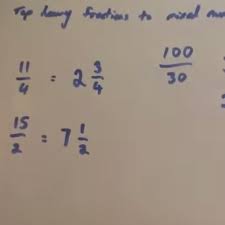 Top heavy fractions to mixed
11/4 = 2 3/4
100/30
15/2 = 7 1/2